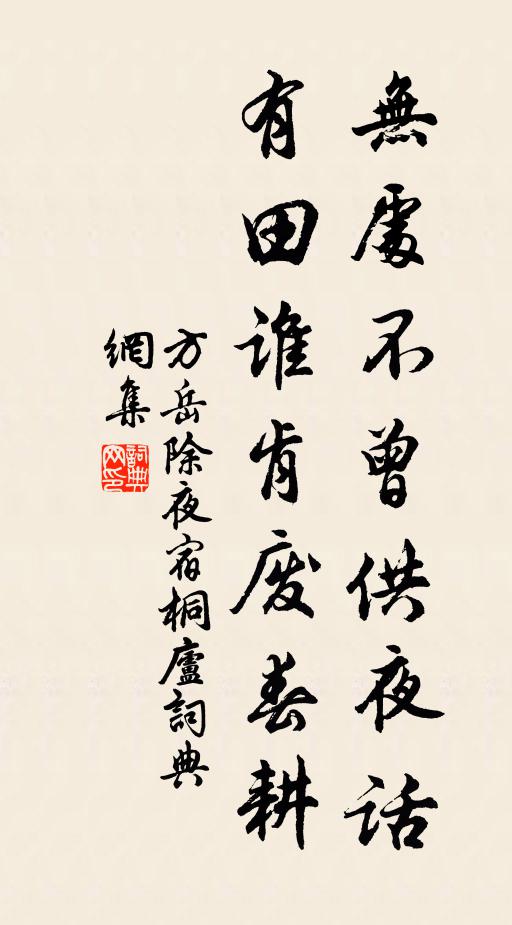 無處不曾供夜话
有田谁肯废春耕
方岳除夜宿桐廬詞典
網集
詞典
网印